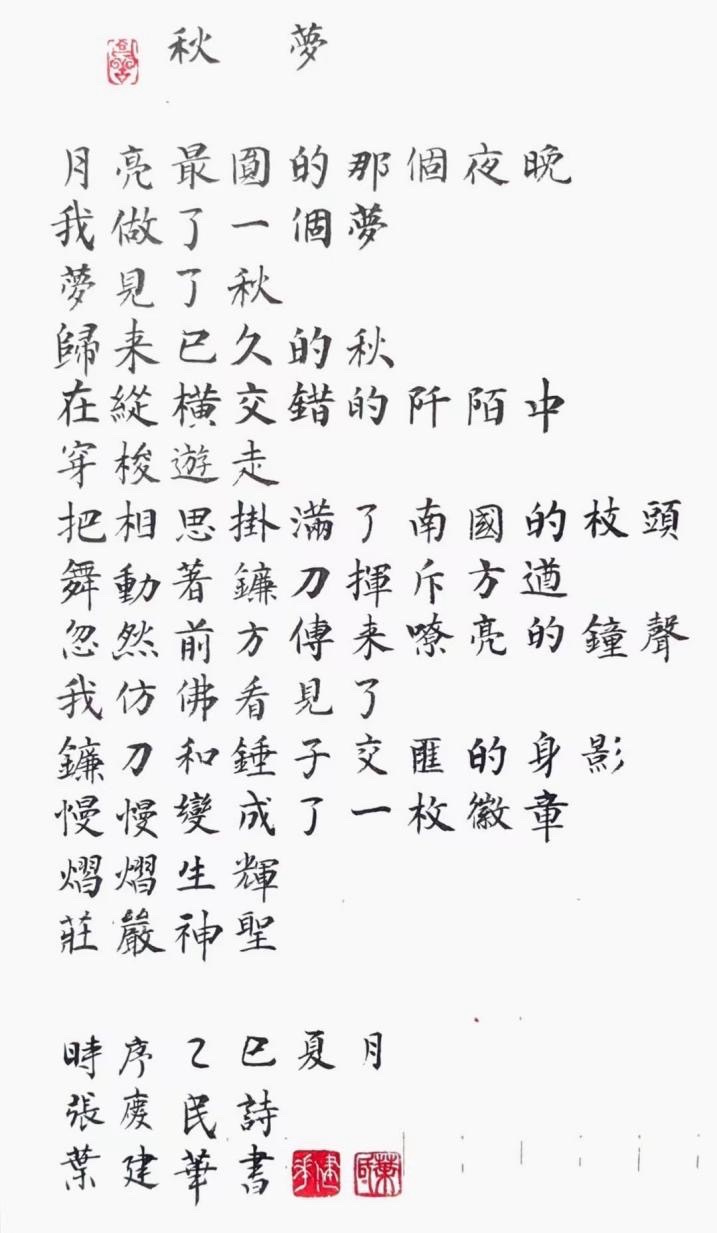 秋 夢
月亮最圓的那個夜晚
我做了一個夢
夢見了秋
歸来已久的秋
在縱橫交錯的阡陌中
穿梭遊走
把相思掛滿了南國的枝頭
舞動著鐮刀揮斥方遒
忽然前方傳来嘹亮的鐘聲
我仿佛看見了
鐮刀和錘子交匯的身影
慢慢變成了一枚徽章
熠熠生輝
莊嚴神聖
時序乙巳夏月
張慶民詩
葉建華書